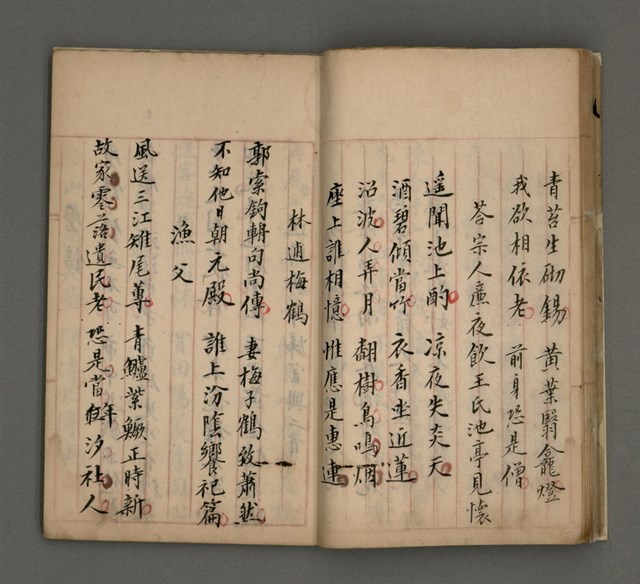 青苔生砌錫 黃葉翳龕燈
我欲相依老 前身恐是僧
荅宗人廉夜飲王氏池亭見懷
遥聞池上酌 凉夜失炎天
酒碧傾當竹 衣香坐近蓮
沼波人弄月 翻樹鳥鳴烟
座上誰相憶 惟應是惠連
林逋梅鶴
郭索鉤輈句尚傳 妻梅子鶴致蕭然
不知他日朝元殿 誰上汾陰饗祀篇
漁父
風送三江雉尾蓴 青鱸紫鱖正時新
故家零落遺民老 恐是當年汐社人